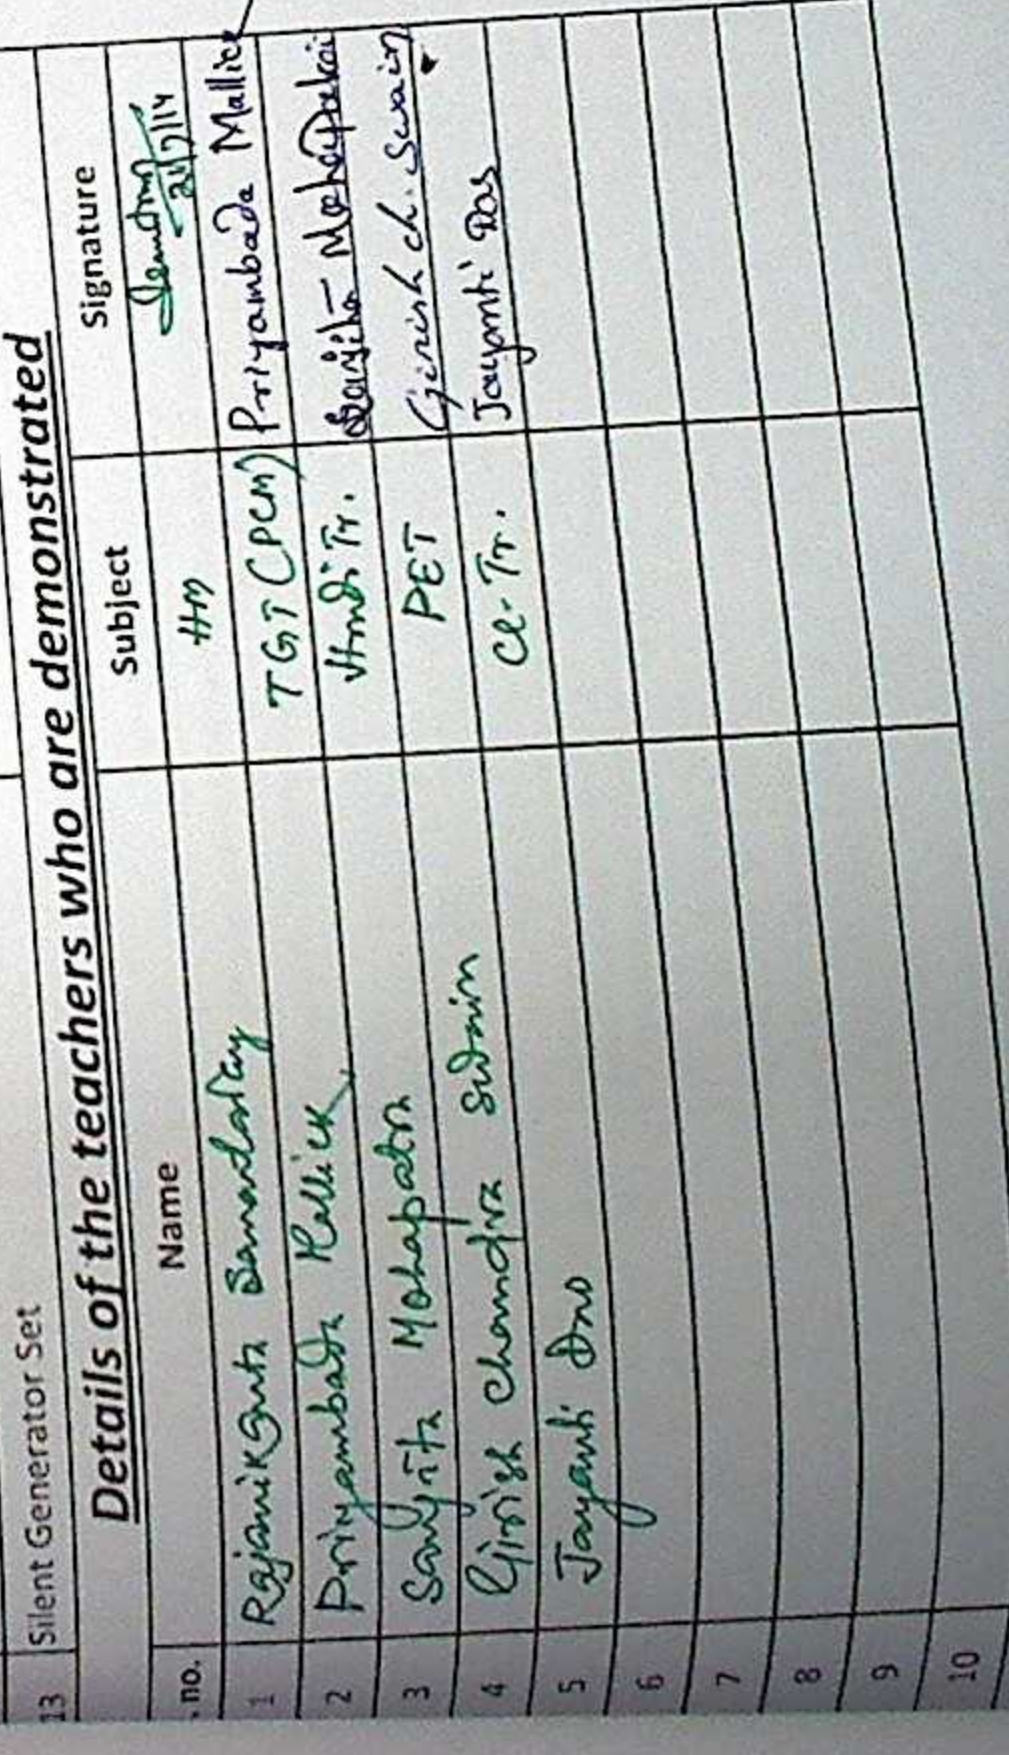 13 Silent Generator Set
Details of the teachers who are demonstrated
. no. Name Subject Signature
1 Rajanikanta Samantaray HM 21/7/14
2 Priyambada Mallick TGT (PCM) Priyambada Mallick
3 Sanjita Mohapatra Hindi Tr. Sanjita Mohapatra
4 Girish Chandra Swain PET Girish ch. Swain
5 Jayanti Das Cl. Tr. Jayanti Das
6
7
8
9
10